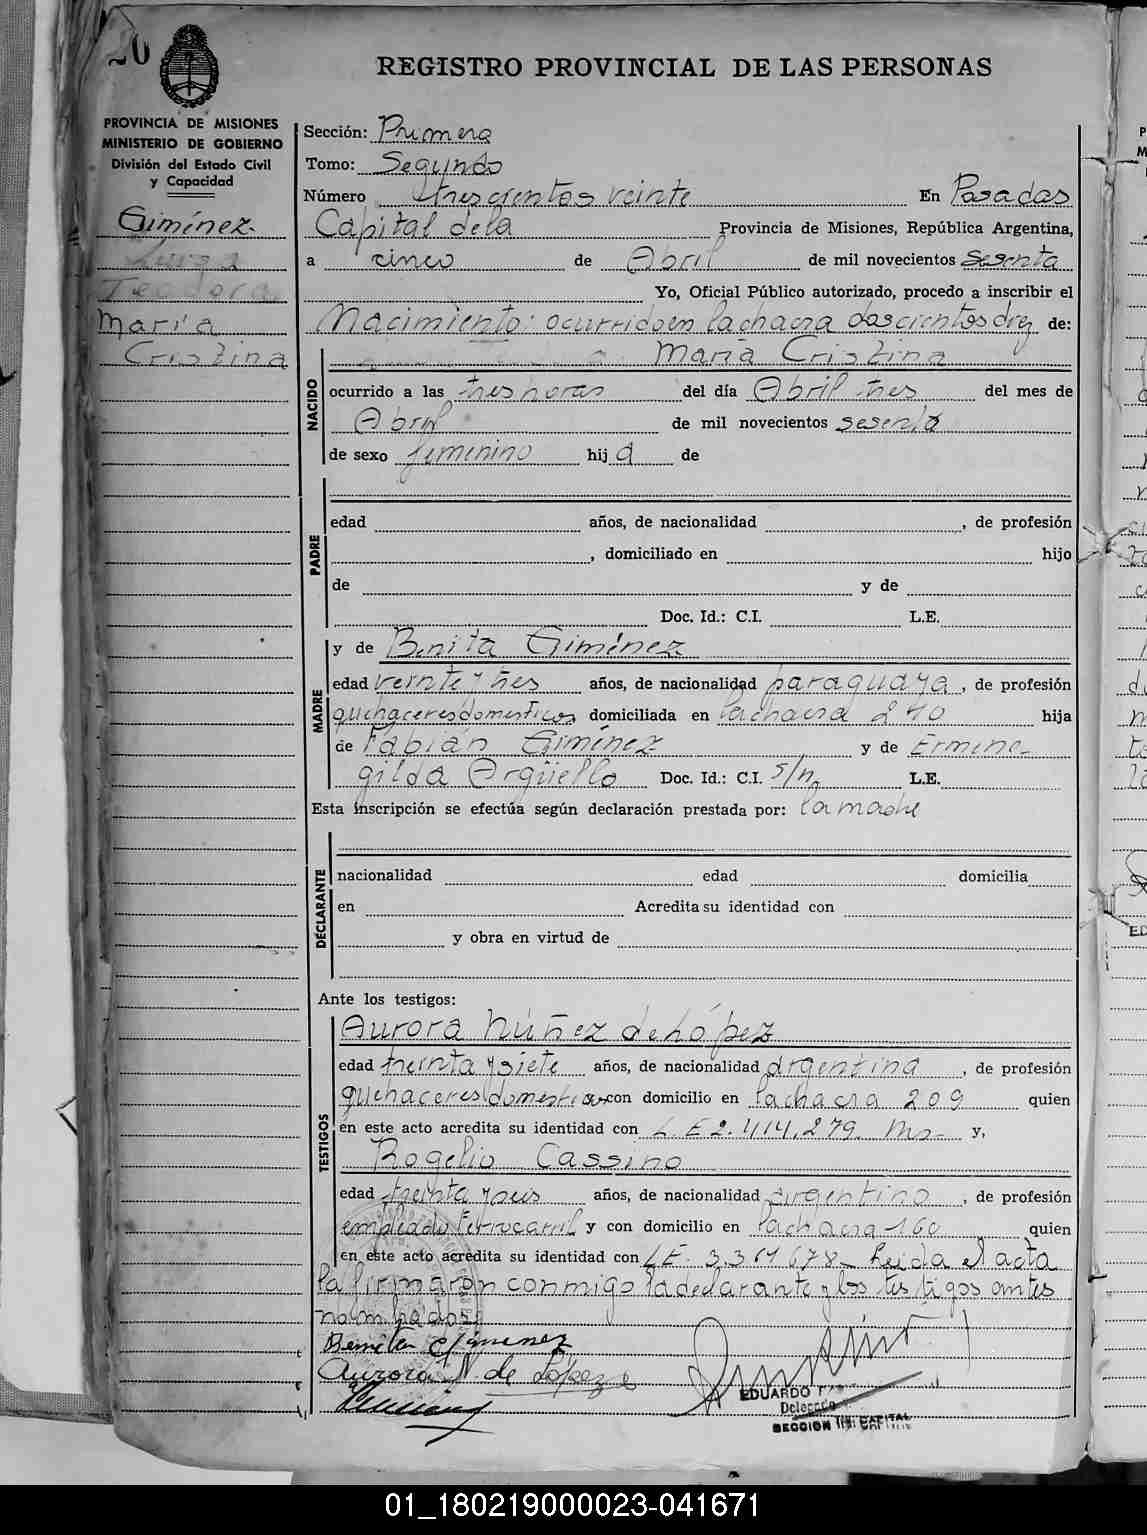 20
REGISTRO PROVINCIAL DE LAS PERSONAS
PROVINCIA DE MISIONES
MINISTERIO DE GOBIERNO
División del Estado Civil
y Capacidad
Giménez
Luisa
Teodora
María
Cristina
Sección: Primera
Tomo: Segundo
Número trescientos veinte En Posadas
Capital de la Provincia de Misiones, República Argentina,
a cinco de Abril de mil novecientos sesenta
Yo, Oficial Público autorizado, procedo a inscribir el
Nacimiento: ocurrido en la chacra doscientos diez de:
María Cristina
NACIDO
ocurrido a las tres horas del día Abril tres del mes de
Abril de mil novecientos sesenta
de sexo femenino hija de
PADRE
edad años, de nacionalidad , de profesión
, domiciliado en hijo
de y de
Doc. Id.: C.I. L.E.
MADRE
y de Benita Giménez
edad veinte y tres años, de nacionalidad paraguaya, de profesión
quehaceres domesticos domiciliada en la chacra 210 hija
de Fabián Giménez y de Ermene-
gilda Argüello Doc. Id.: C.I. s/n L.E.
Esta inscripción se efectúa según declaración prestada por: la madre
DECLARANTE
nacionalidad edad domicilia
en Acredita su identidad con
y obra en virtud de
Ante los testigos:
TESTIGOS
Aurora Núñez de López
edad treinta y siete años, de nacionalidad argentina, de profesión
quehaceres domesticos con domicilio en la chacra 209 quien
en este acto acredita su identidad con L.E 2.414.279. Ms- y,
Rogelio Cassino
edad treinta y seis años, de nacionalidad argentino, de profesión
empleado Ferrocarril y con domicilio en la chacra 160 quien
en este acto acredita su identidad con L.E. 3.361.678- Leida el acta
la firmaron conmigo la declarante y los testigos antes
nombrados
Benita Giménez
Aurora N. de López
EDUARDO
Delegado
SECCION 1ra. CAPITAL
01_180219000023-041671